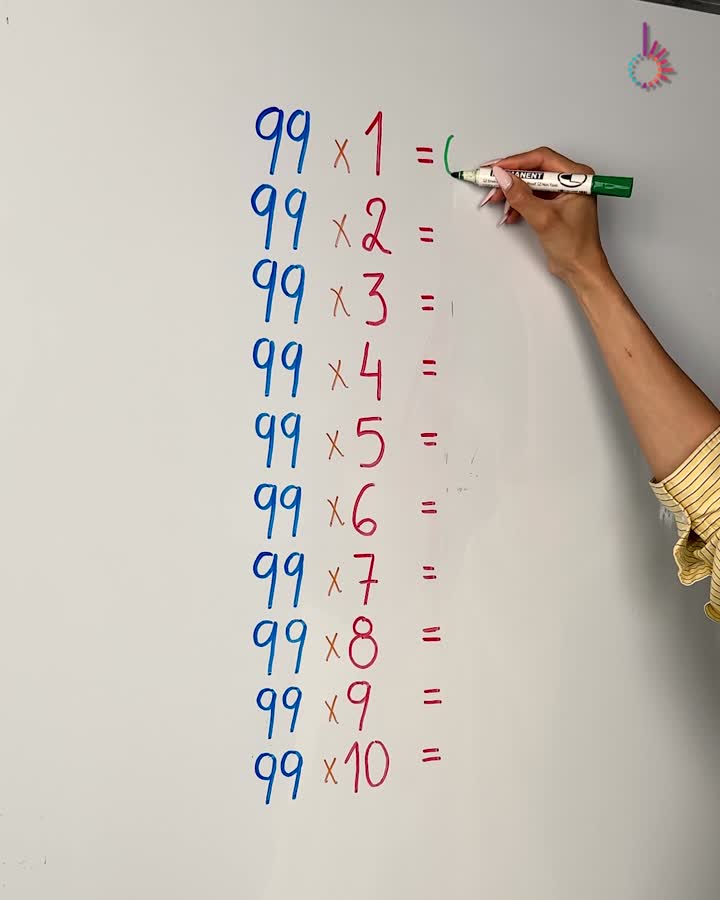 99 x 1 =
PERMANENT
99 x 2 =
99 x 3 =
99 x 4 =
99 x 5 =
99 x 6 =
99 x 7 =
99 x 8 =
99 x 9 =
99 x 10 =